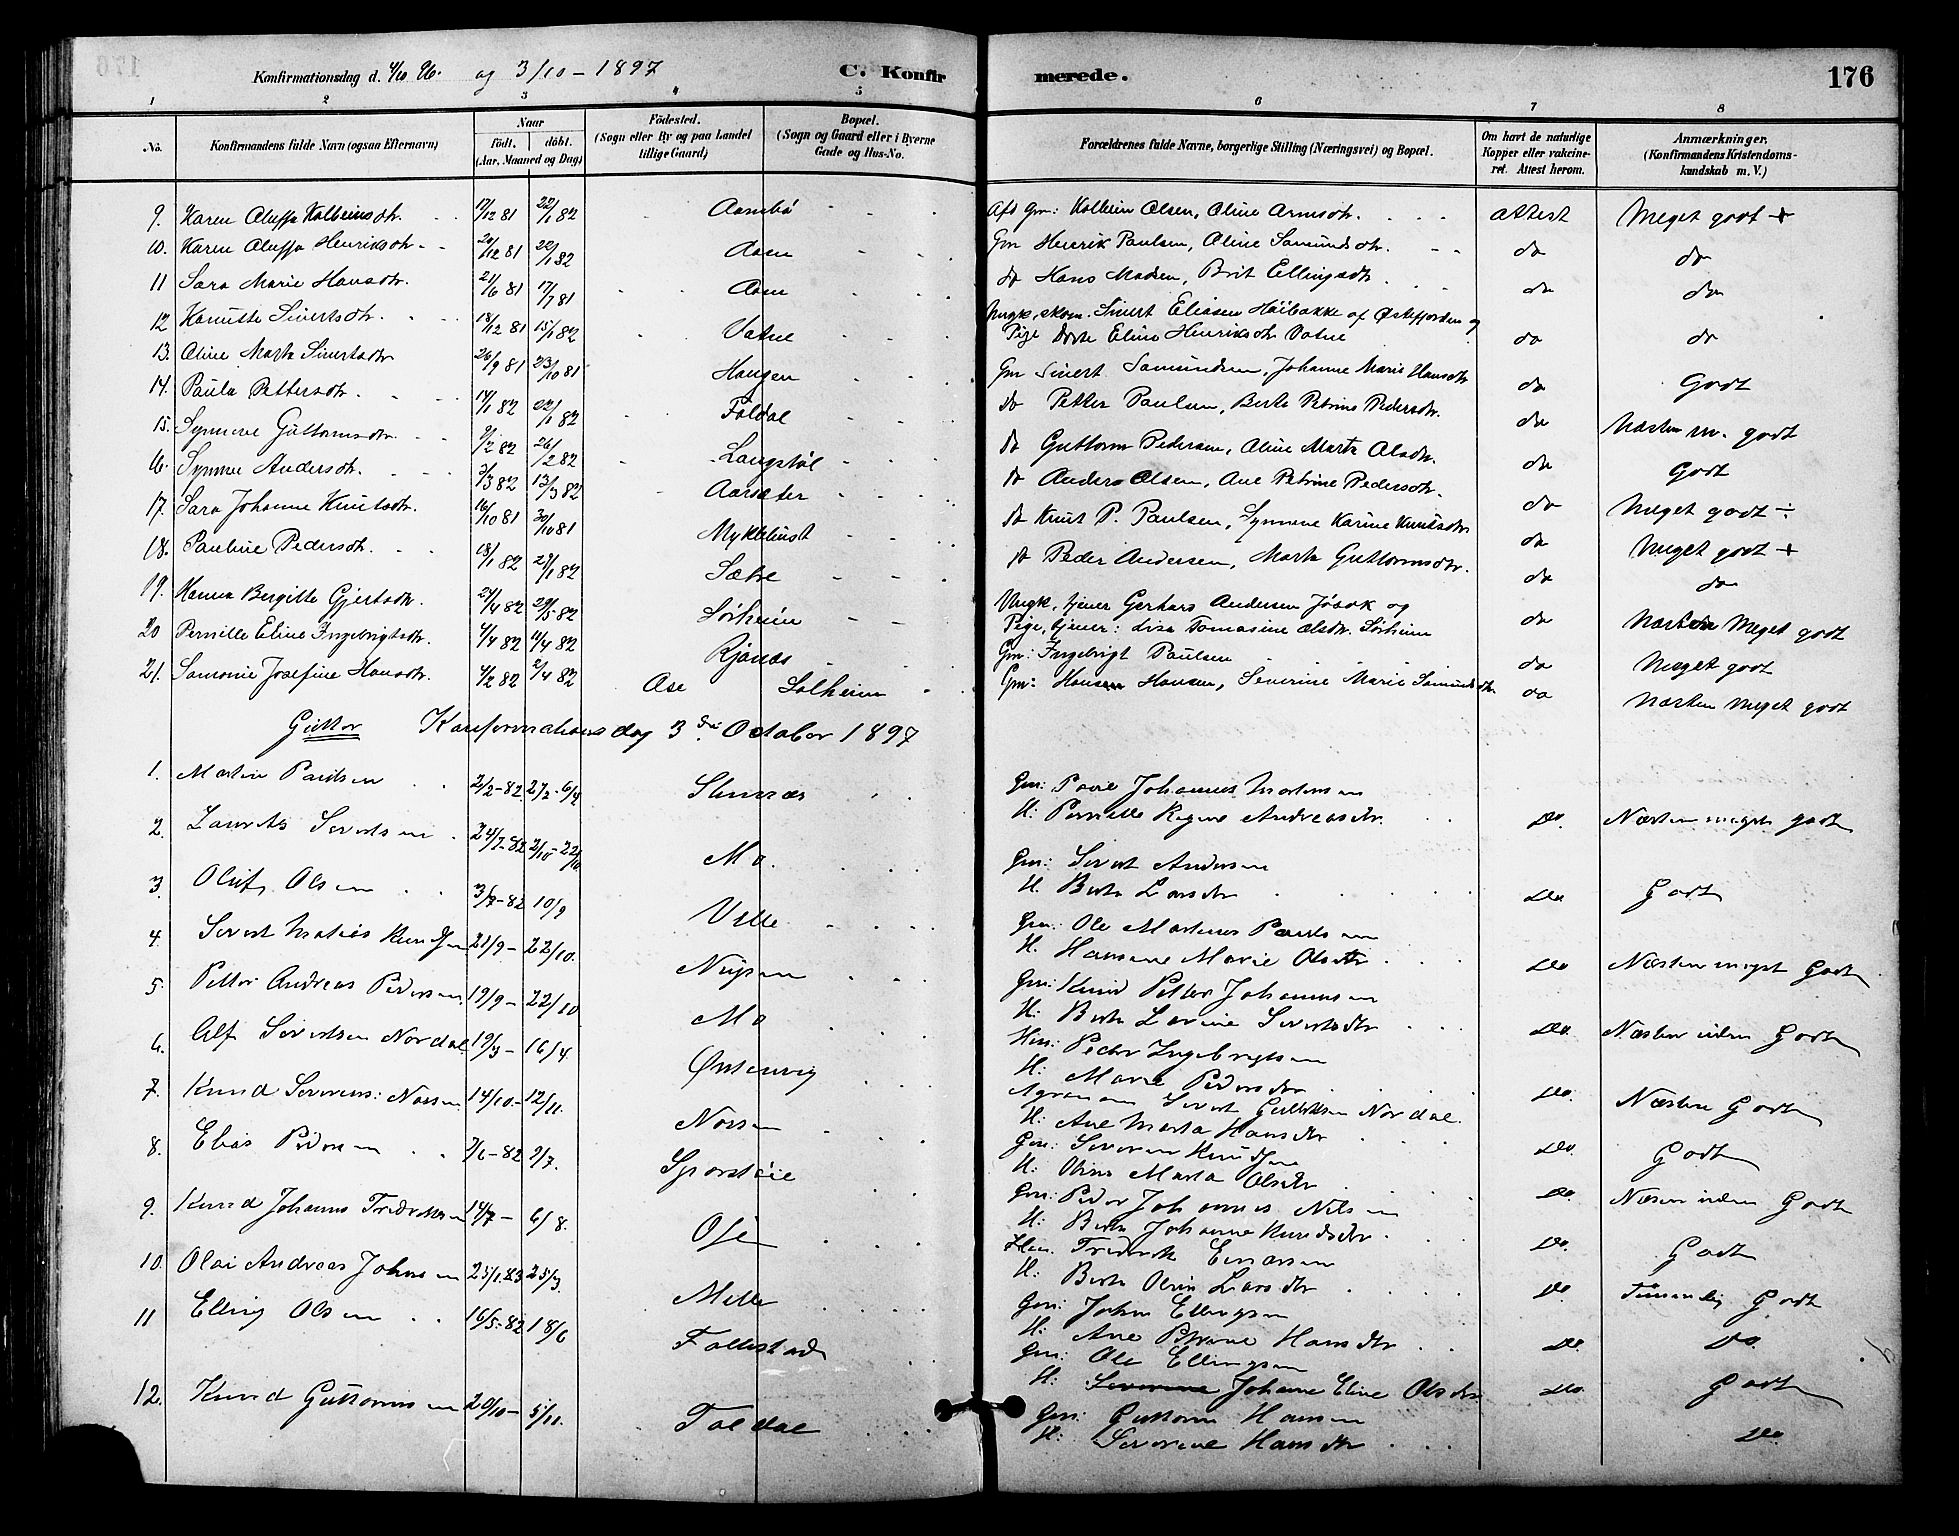 Konfirmationsdag d. 4/10 96. og 3/10 - 1897 C. Konfirmerede. 176
1 2 3 4 5 6 7 8
No.
Konfirmandens fulde Navn (ogsaa Efternavn)
Naar
födt. döbt.
(Aar, Maaned og Dag)
Födested.
(Sogn eller By og paa Landet tillige Gaard)
Bopæl.
(Sogn og Gaard eller i Byerne Gade og Hus-No.
Forældrenes fulde Navne, borgerlige Stilling (Næringsvei) og Bopæl.
Om havt de naturlige Kopper eller vakcineret. Attest herom.
Anmærkninger.
(Konfirmandens Kristendomskundskab m. V.)
9. Karen Oluffa Kolbeinsdtr. 17/12 81 22/1 82 Aambö Afd Gm: Kolbein Olsen, Oline Arnesdtr. attest Meget godt +
10. Karen Oluffa Henriksdtr. 20/12 81 22/1 82 Aam Gm Henrik Paulsen, Oline Samundsdtr. do do
11 Sara Marie Hansdtr. 21/6 81 17/7 81 Aam do Hans Madsen, Brit Ellingsdtr. do do
12 Knutte Sivertsdtr. 18/12 81 15/1 82 Vatne Ungk, skom. Sivert Eliasen Höibakke af Østefjorden og
Pige Dorte Eline Henriksdtr Vatne do do
13. Oline Marta Sivertsdtr 26/9 81 23/10 81 Haugen Gm Sivert Samundsen, Johanne Marie Hansdtr do Godt
14. Paula Pettersdtr. 14/1 82 22/1 82 Foldal do Petter Paulsen, Berte Petrine Pedersdtr. do Næsten m. godt
15. Synneve Guttormsdtr. 9/2 82 26/2 82 Langstöl do Guttorm Pedersen, Oline Marta Olsdtr. do Godt
16. Synneve Andersdtr. 3/3 82 13/3 82 Aarsæter do Anders Olsen, Ane Petrine Pedersdtr. do Meget godt ÷
17. Sara Johanne Knutsdtr. 16/10 81 30/10 81 Myklebust do Knut P. Paulsen, Synneve Karine Knutsdtr do Meget godt +
18. Pauline Pedersdtr. 18/1 82 29/1 82 Sætre do Peder Andersen, Marta Guttormsdtr. do do
19. Hanna Bergitte Gjertsdtr. 24/4 82 29/5 82 Sörheim Ungk, tjener Gerhard Andersen Jösok og
Pige, tjener: Lisa Tomasine Olsdtr. Sörheim do Næsten Meget godt
20 Pernille Eline Ingebrigtsdtr. 4/4 82 11/4 82 Rjånes Gm: Ingebrigt Paulsen do Meget godt
21. Samonie Josefine Hansdtr. 4/2 82 2/4 82 Ose Solheim Gm: Hans Hansen, Severine Marie Samundsdtr do Næsten Meget godt
Gutter Konfirmationsdag 3die October 1897
1. Martin Paulsen 2/2-82. 27/2 - 6/4 Slinnes Gm: Paul Johannes Martensen
H: Pernille Regine Andreasdtr. Do. Næsten meget godt
2. Laurits Severtsen 24/7-82 2/10 - 22/10 Mo. Gm: Severt Andersen
H. Berte Larsdtr Do Godt
3. Oluf Olsen 3/8-82 10/9 Velle Gm: Ole Martinus Paulsen
H. Hansine Marie Olsdtr Do Næsten meget Godt
4. Severt Matias Knudsen 21/9 - 22/10. Nupen Gm: Knud Petter Johannesen
H: Berte Lovise Severtsdtr Do. Næsten uden Godt
5. Petter Andreas Pedersen 19/9 - 22/10 Mo Hm: Peder Ingebrigtsen
H: Marie Pedersdtr Do. Næsten Godt
6. Alf Severtsen Nordal 19/3 - 16/4 Østenvig Agronom Severt Guttormsen Nordal.
H: Ane Marta Hansdtr Do. Godt
7. Knud Severins: Nossen 14/10. - 12/11. Nossen Gm: Severin Knudsen
H: Oline Marta Olsdtr Do. Næsten uden Godt
8. Elias Pedersen 2/6-82 2/7. Sporstöie Gm: Peder Johannes Nilsen
H: Berte Johanne Knudsdtr. Do. Godt
9. Knud Johannes Fredriksen 14/7 - 6/8. Ose Hm. Fredrik Einarsen
H: Berte Oline Larsdtr Do Temmelig Godt
10. Olai Andreas Johnsen 25/1.83 25/3. Melle Gm: John Ellingsen
H: Ane Petrine Hansdtr Do. Do.
11 Elling Olsen 16/5-82 18/6 Follestad Gm: Ole Ellingsen
H: Severine Johane Eline Olsdtr Do. Godt
12. Knud Guttormsen 20/10 - 5/11. Foldal Gm: Guttorm Hansen
H: Severine Hansdtr Do.